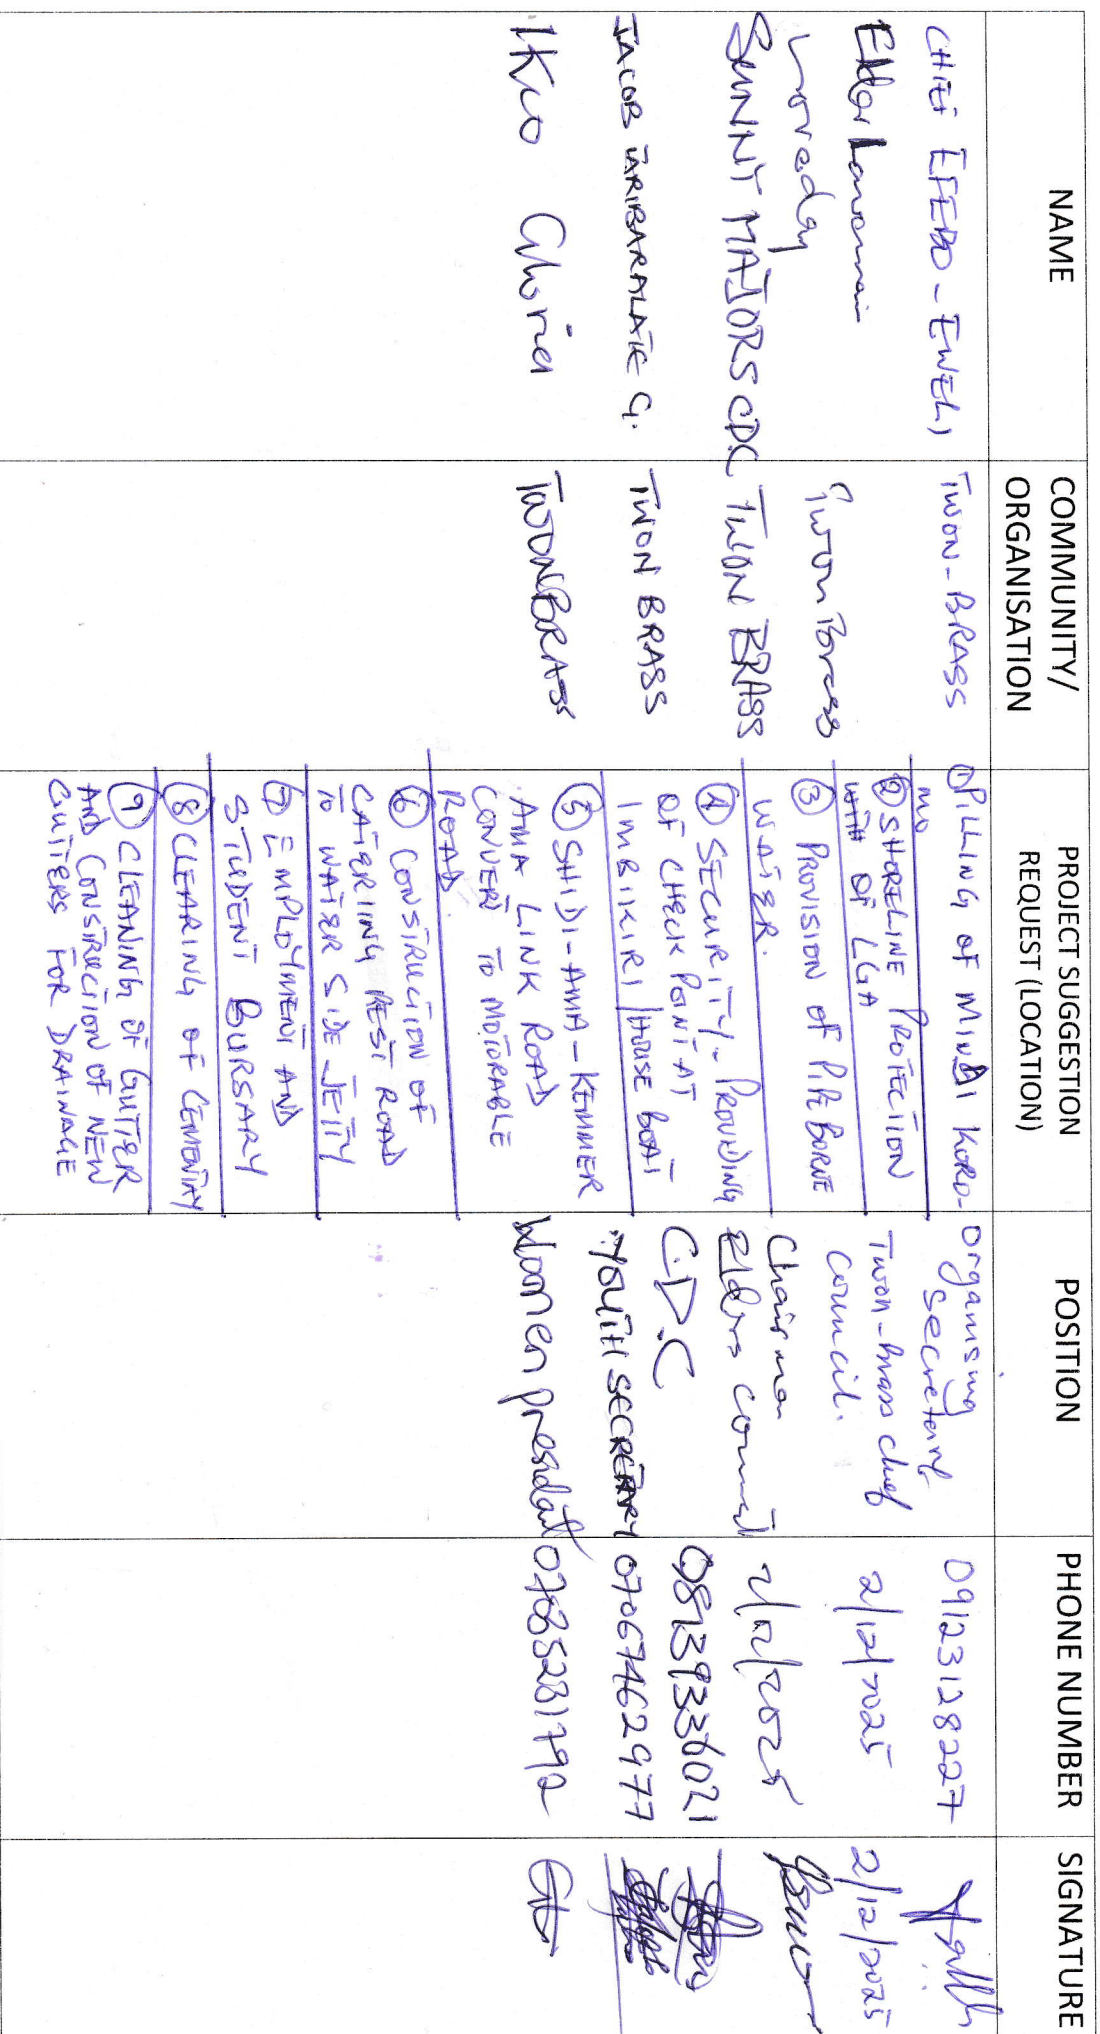 NAME
COMMUNITY/
ORGANISATION
PROJECT SUGGESTION
REQUEST (LOCATION)
POSITION
PHONE NUMBER
SIGNATURE
CHIEF EFEBO-EWELI
TWON-BRASS
① PILLING OF MINDI KORO-
MO
Organising
Secretary
Twon-Brass chief
council.
09123128227
2/12/2025
2/12/2025
Elder
Loveday
Twon Brass
② SHORELINE PROTECTION
WITH OF LGA
③ PROVISION OF PIPE BORNE
WATER.
Chairman
Elders council
2/12/2025
SUNNY MAJORS CDC
TWON BRASS
④ SECURITY- PROVIDING
OF CHECK POINT AT
IMBIKIRI/HOUSE BOAT
C.D.C
08139336021
JACOB ARIBARALATE G.
TWON BRASS
⑤ SHIDI-AMA-KEMMER
AMA LINK ROAD
CONVERT TO MOTORABLE
ROAD.
YOUTH SECRETARY
07067462977
IKIO Gloria
TWONBRASS
Women president
07085231792
⑥ CONSTRUCTION OF
CATERING REST ROAD
TO WATER SIDE JETTY
⑦ EMPLOYMENT AND
STUDENT BURSARY
⑧ CLEARING OF CEMENTRY
⑨ CLEANING OF GUTTER
AND CONSTRUCTION OF NEW
GUTTERS FOR DRAINAGE